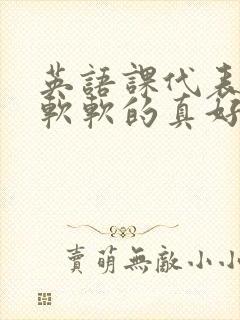 英語課代表
軟軟的真好
賣萌無敵小小